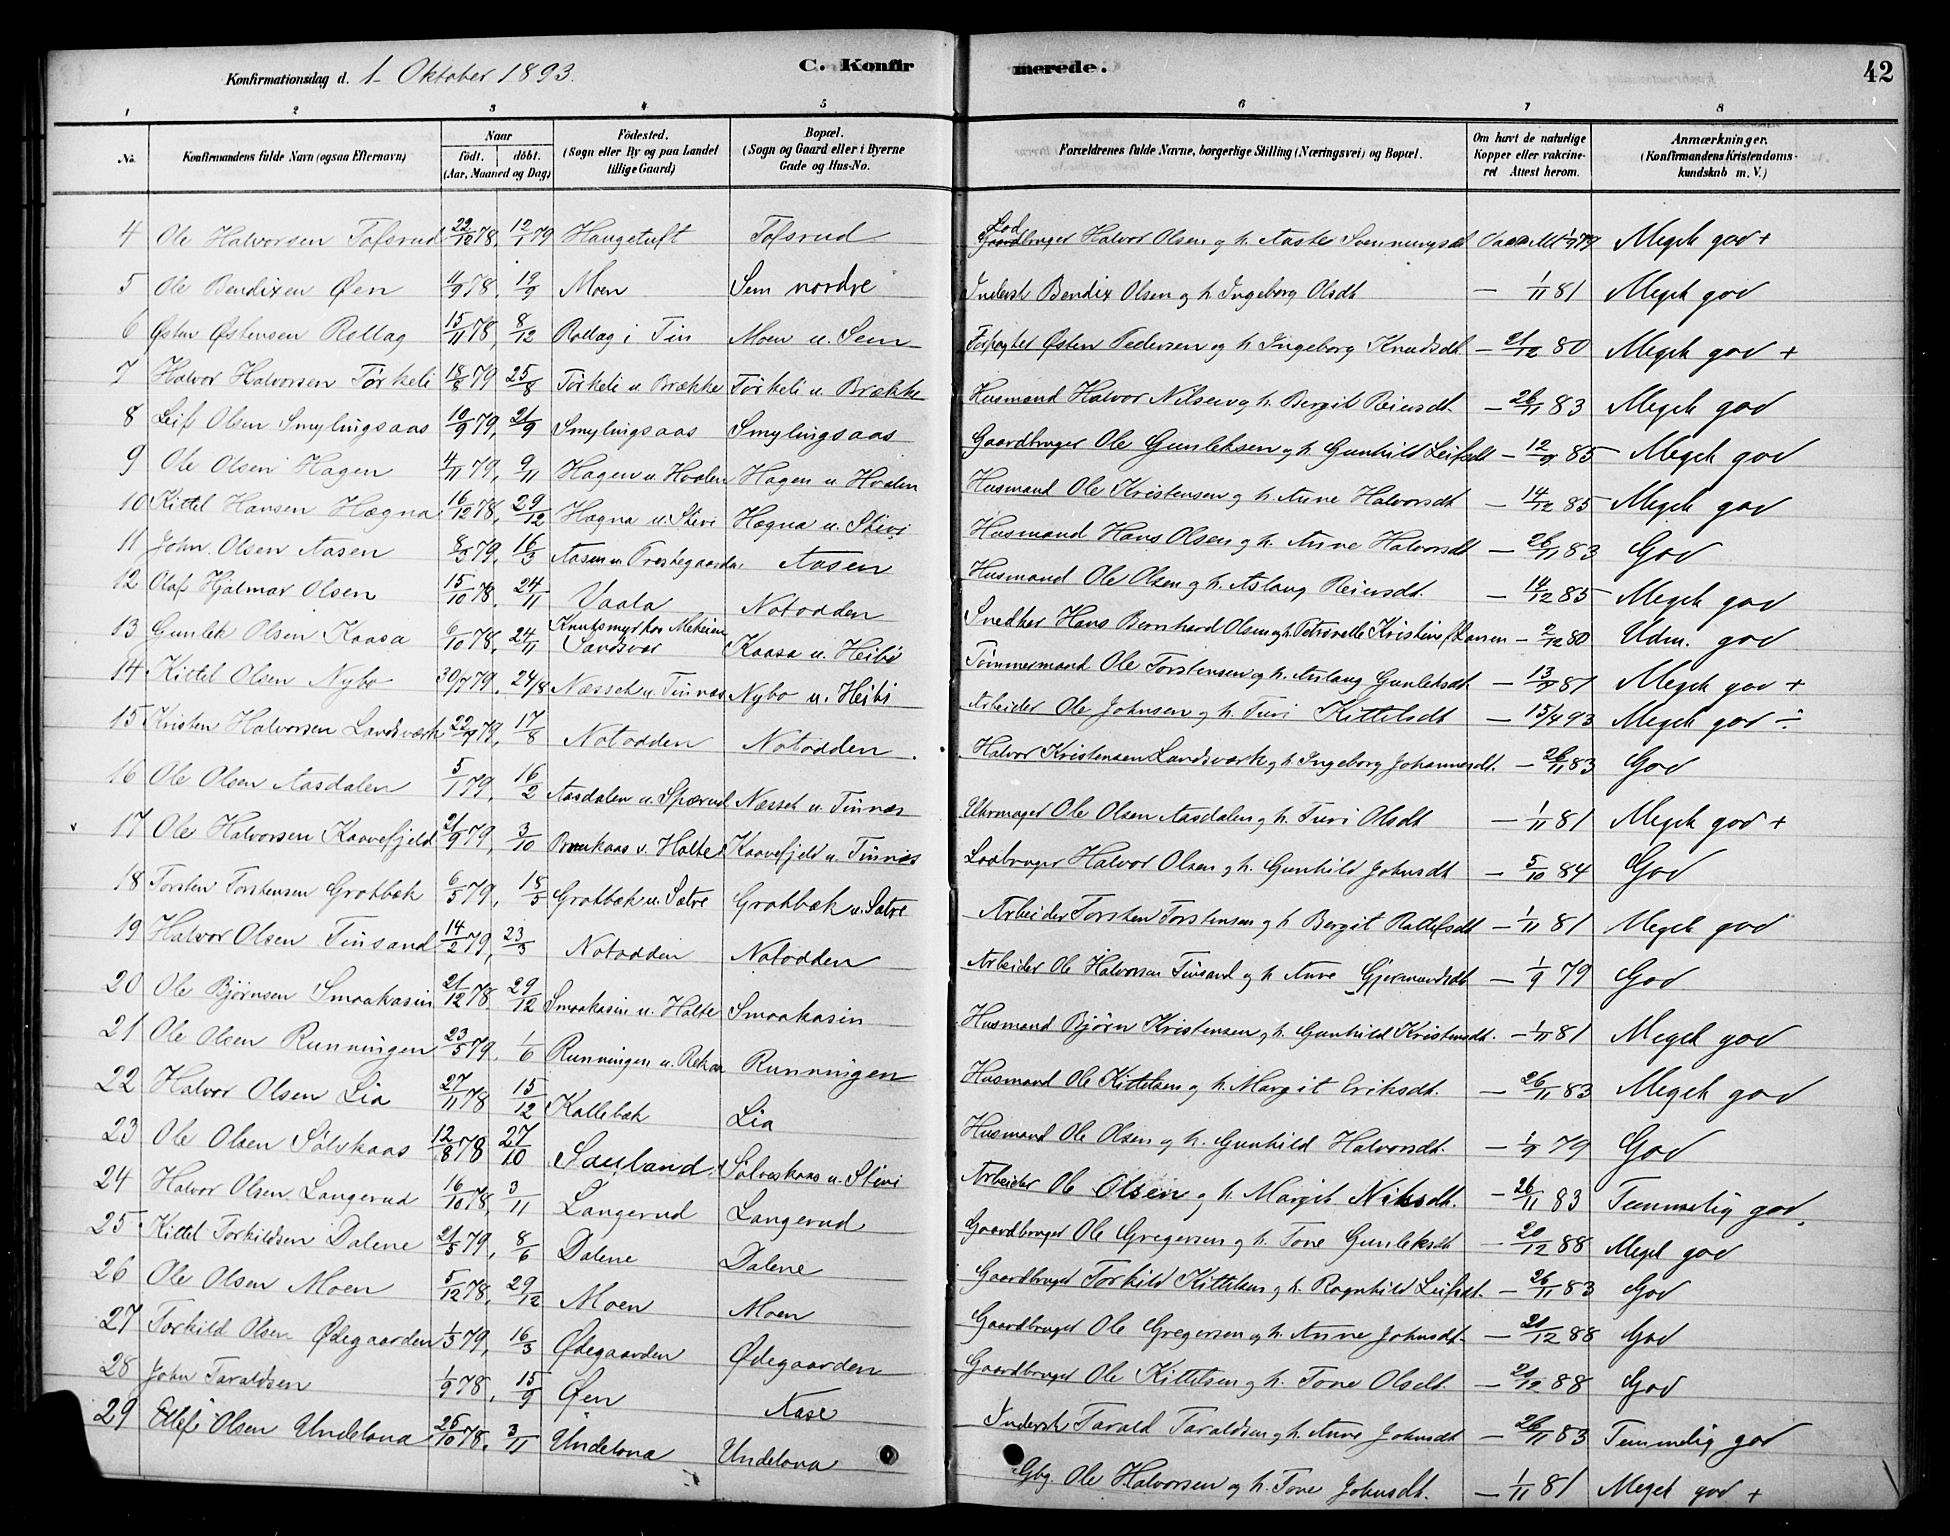 Konfirmationsdag d. 1. Oktober 1893.
C. Konfirmerede.
42
1 2 3 4 5 6 7 8
No. Konfirmandens fulde Navn (ogsaa Efternavn) Naar født. døbt. (Aar, Maaned og Dag) Födested. (Sogn eller By og paa Landet tillige Gaard) Bopæl. (Sogn og Gaard eller i Byerne Gade og Hus-No. Forældrenes fulde Navne, borgerlige Stilling (Næringsvei) og Bopæl. Om havt de naturlige Kopper eller vakcineret Attest herom. Anmærkninger. (Konfirmandens Kristendomskundskab m. V.)
4 Ole Halvorsen Tofsrud 22/12 78, 12/1 79 Haugetuft Tofsrud Lodbruger Halvor Olsen og h. Aaste Svenningsdt Meget god +
5 Ole Bendixen Øen 4/9 78, 19/9 Moen Sem nordre Inderst Bendix Olsen og h. Ingeborg Olsdt – 1/11 81 Meget god
6 Østen Østensen Rollag 15/11 78, 8/12 Rollag i Tin Moen u. Sem Forpagter Østen Pedersen og h. Ingeborg Knudsdt – 21/12 80 Meget god +
7 Halvor Halvorsen Tørkeli 18/8 79 25/8 Tørkeli u Brække Tørkeli u. Brække Husmand Halvor Nilsen og h. Bergit Reiersdt. – 26/11 83 Meget god
8 Leif Olsen Smylingsaas 10/9 79, 21/9 Smylingsaas Smylingsaas Gaardbruger Ole Gunleksen og h. Gunhild Leifsdt – 12/9 85 Meget god
9 Ole Olsen Hagen 4/11 79, 9/11 Hagen u Hvalen Hagen u Hvalen Husmand Ole Kristensen og h. Anne Halvorsdt – 14/12 85 Meget god
10 Kittel Hansen Hægna 16/12 78, 29/12 Hægna u. Stivi Hægna u. Stivi Husmand Hans Olsen og h. Anne Halvorsdt – 26/11 83 God
11 John Olsen Aasen 8/3 79, 16/3 Aasen u Prestegaarden Aasen Husmand Ole Olsen og h. Aslaug Reiersdt. – 14/12 85 Meget god
12 Olaf Hjalmar Olsen 15/10 78, 24/11 Vaala Notodden Snedker Hans Bernhard Olsen og h. Petronelle Kristine f Larsen – 2/12 80 Udm. god
13 Gunlek Olsen Kaasa 6/10 78, 24/11 Sandsvær Kaasa u. Heibø Tømmermand Ole Torstensen og h. Aslaug Gunleksdt. – 13/9 81 Meget god +
14 Kittel Olsen Nybø 30/7 79, 24/8 Næsset u Tinnæs Nybø u. Heibø Arbeider Ole Johnsen og h. Turi Kittelsdt – 15/4 93 Meget god ÷
15 Kristen Halvorsen Landsværk 22/7 79, 17/8 Notodden Notodden Halvor Kristensen Landsværk og h. Ingeborg Johannesdt. – 26/11 83 God
16 Ole Olsen Aasdalen 5/1 79, 16/2 Aasdalen u. Sperud Næsset u. Tinnæs Uhrmager Ole Olsen Aasdalen og h. Turi Olsdt – 1/11 81 Meget god +
17 Ole Halvorsen Kaavefjeld 21/9 79, 3/10 v. Holte Kaavefjeld u. Tinnæs Lodbruger Halvor Olsen og h. Gunhild Johnsdt – 5/10 84 God
18 Torsten Torstensen Grotbæk 6/5 79, 18/5 Grotbæk u. Sætre Grotbæk u. Sætre Arbeider Torsten Torstensen og h. Bergit Rollefsdt – 1/11 81 Meget god
19 Halvor Olsen Tinsand 14/2 79, 23/3 Notodden Notodden Arbeider Ole Halvorsen Tinsand og h. Anne Gjermundsdt – 1/9 79 God
20 Ole Bjørnsen Smaakasin 21/12 78, 29/12 Smaakasin u. Holte Smaakasin Husmand Bjørn Kristensen og h. Gunhild Kristensdt. – 1/11 81 Meget god
21 Ole Olsen Runningen 23/5 79, 1/6 Runningen u. Rekaa Runningen Husmand Ole Kittelsen og h. Margit Eriksdt. – 26/11 83 Meget god
22 Halvor Olsen Lia 27/11 78 15/12 Kallebæk Lia Husmand Ole Olsen og h. Gunhild Halvorsdt. – 1/9 79 God
23 Ole Olsen Sølvskaas 12/8 78 27/10 Sauland Sølveskaas u. Stivi Arbeider Ole Olsen og h. Margit Nilsdt. – 26/11 83 Temmelig god.
24 Halvor Olsen Langerud 16/10 78, 3/11 Langerud Langerud Gaardbruger Ole Gregersen og h. Tone Gunleksdt – 20/12 88 Meget god
25 Kittel Torkildsen Dalene 21/5 79, 8/6 Dalene Dalene Gaardbruger Torkild Kittelsen og h. Ragnhild Leifsdt. – 26/11 83 God
26 Ole Olsen Moen 5/12 78, 29/12 Moen Moen Gaardbruger Ole Gregersen og h. Anne Johnsdt. – 20/12 88 God
27 Torkild Olsen Ødegaarden 1/3 79, 16/3 Ødegaarden Ødegaarden Gaardbruger Ole Kittelsen og h. Tone Olsdt. – 20/12 88 God
28 John Taraldsen 1/9 78, 15/9 Øen Kase Inderst Tarald Taraldsen og h. Anne Johnsdt – 26/11 83 Temmelig god
29 Ellef Olsen Undelova 25/10 78, 3/11 Undelova Undelova Gbg. Ole Halvorsen og h. Tone Johnsdt. – 1/11 81 Meget god +